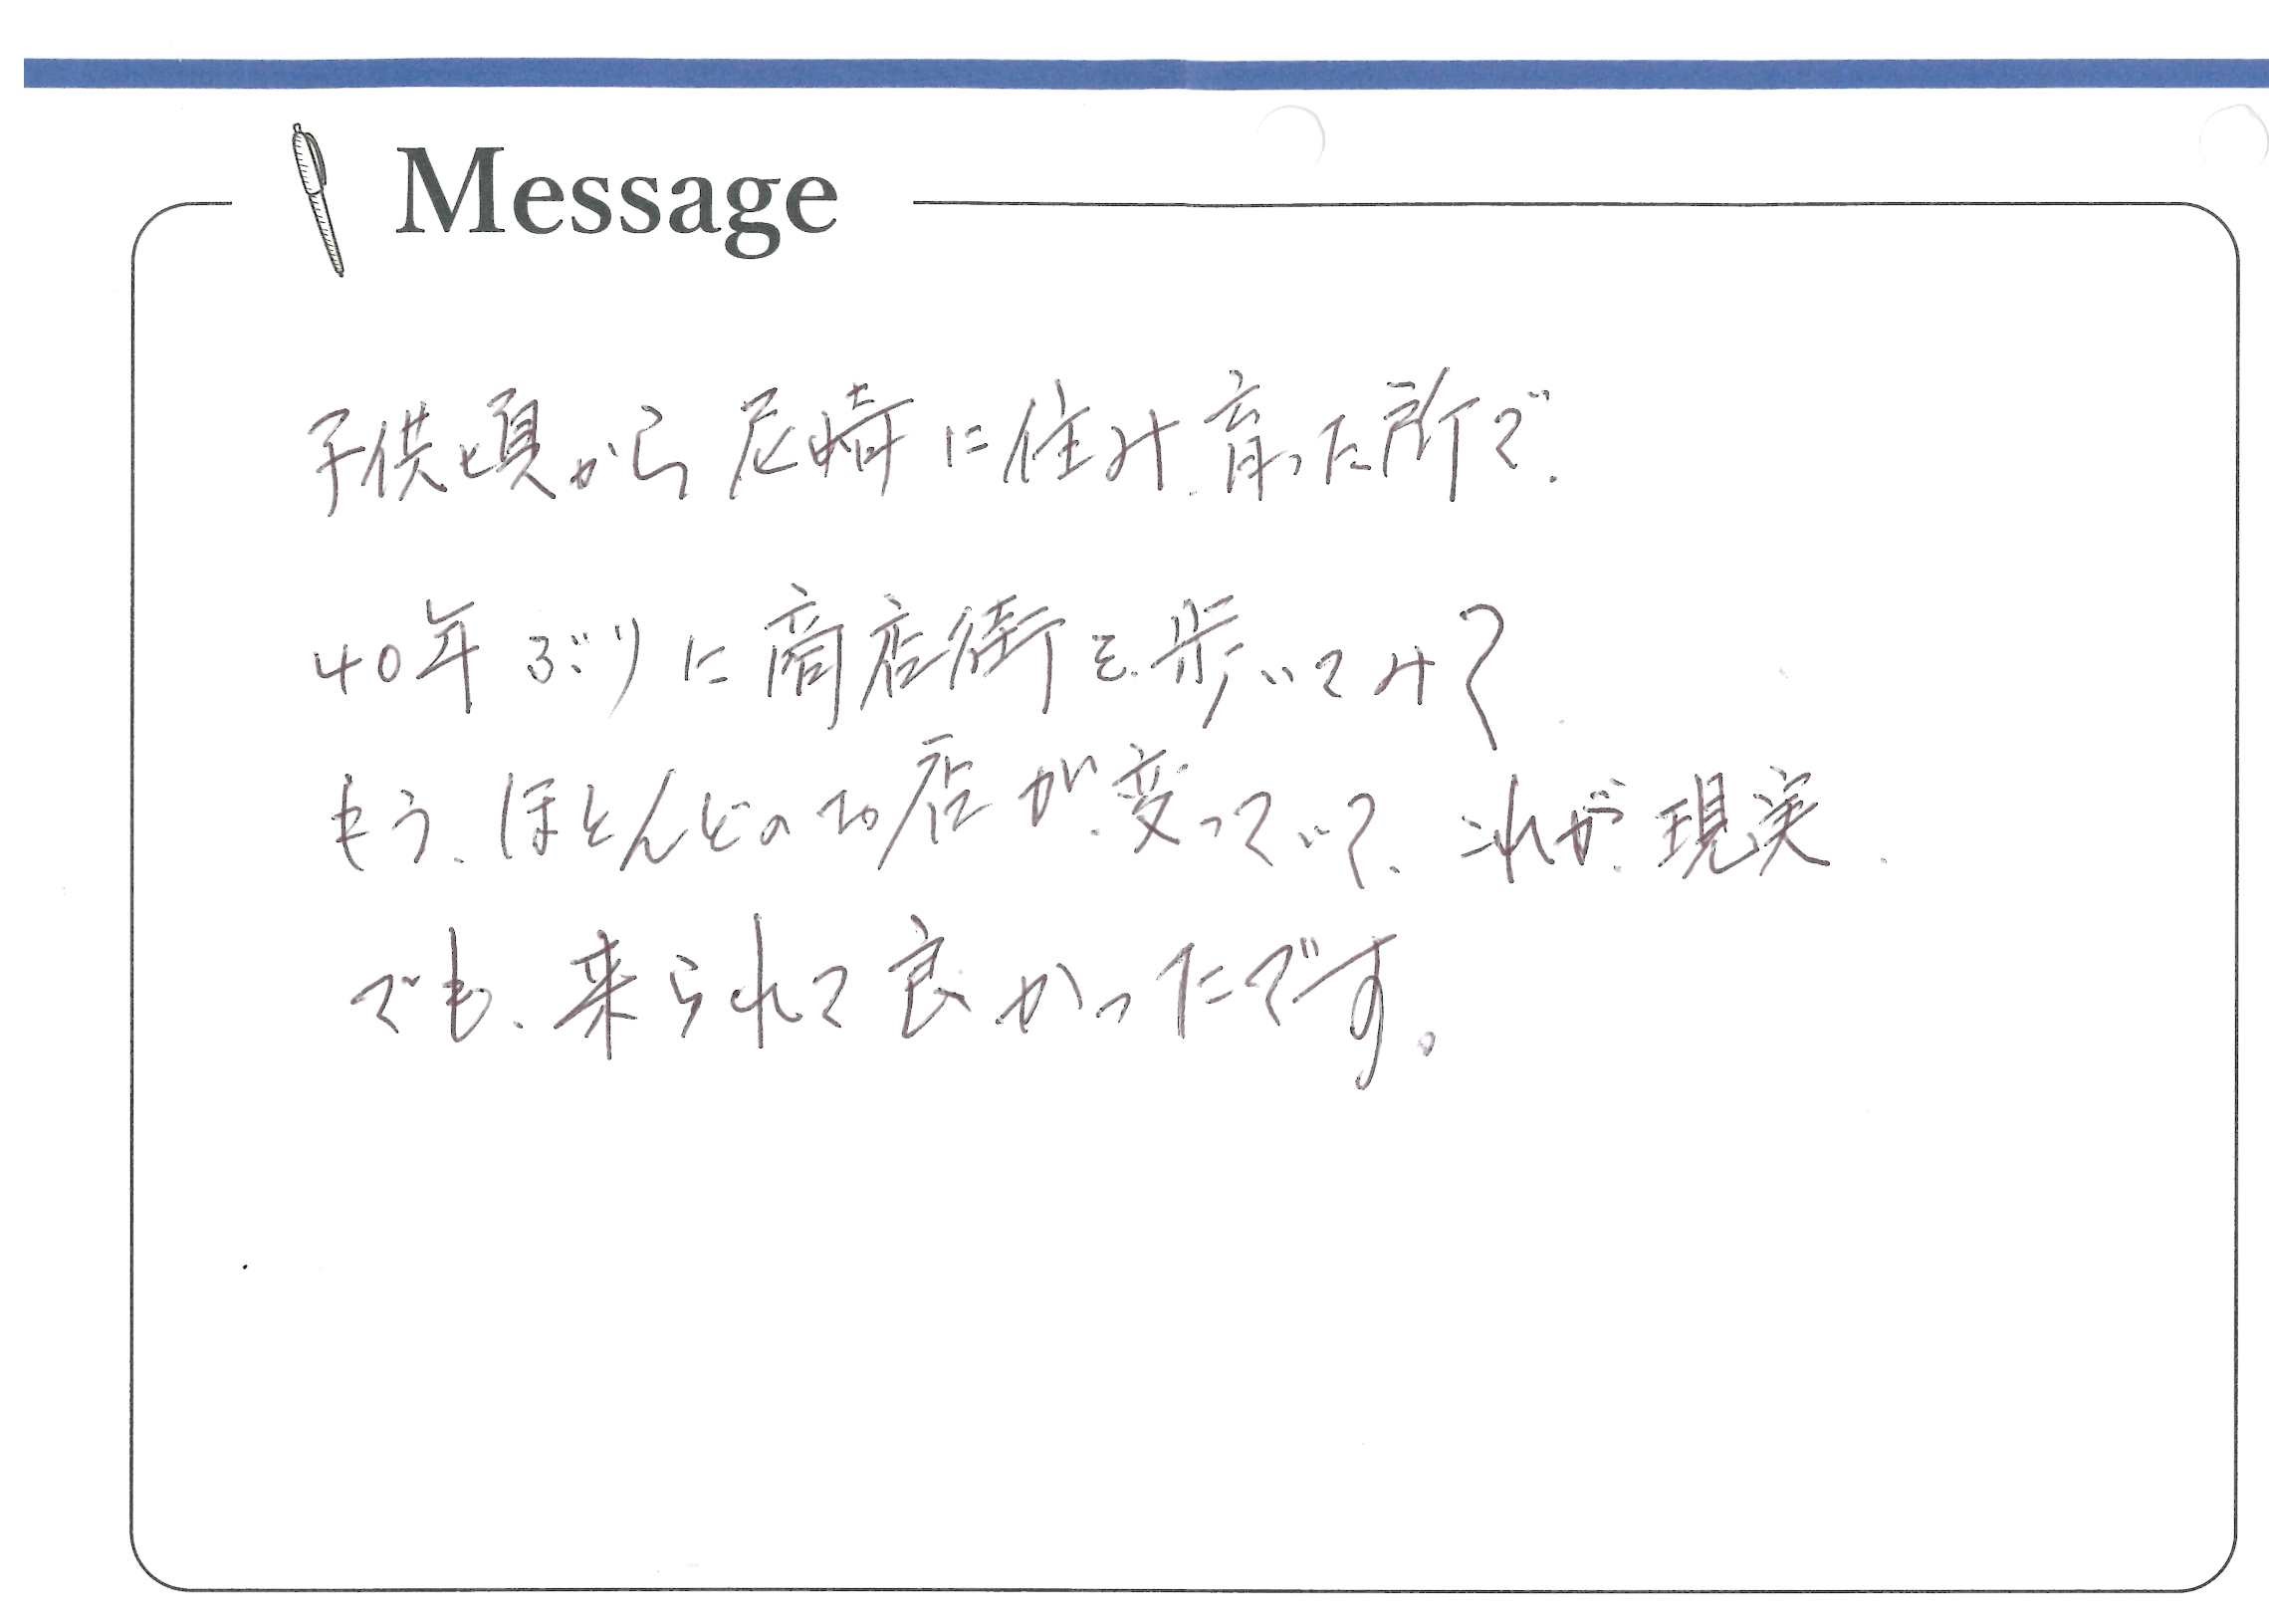 Message
子供頃から尼崎に住み、育った所で、
40年ぶりに商店街を歩いてみて
もう、ほとんどのお店が、変っていて、これが、現実、
でも、来られて良かったです。